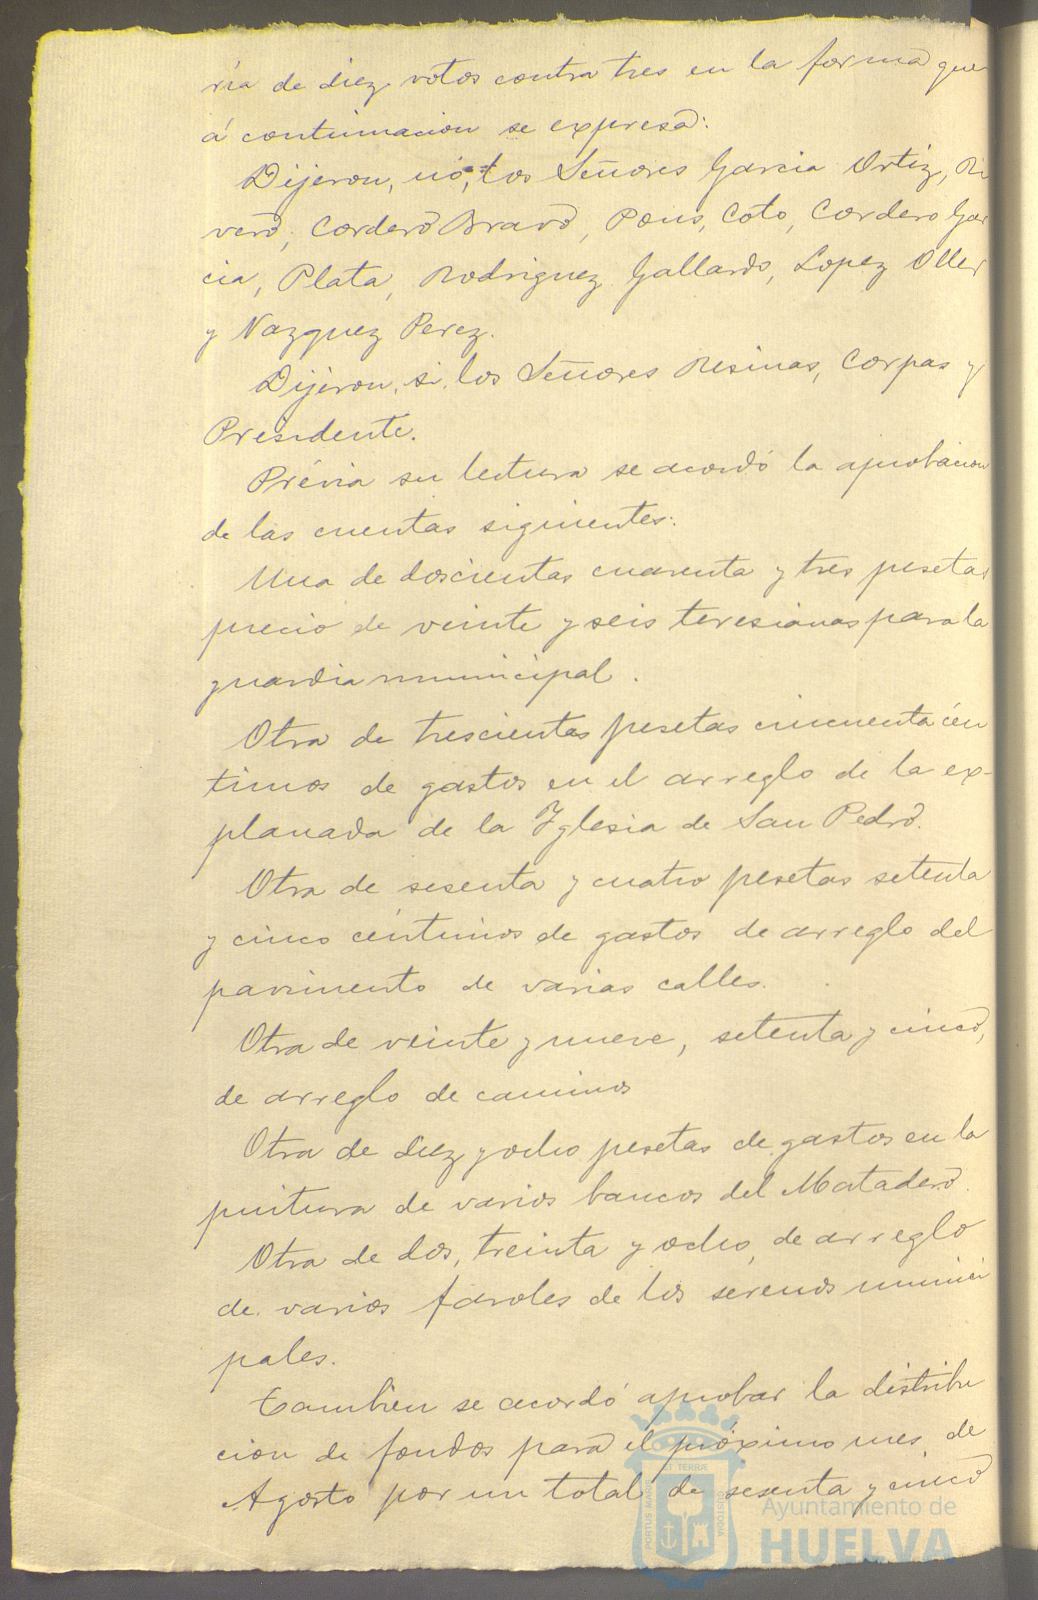 ría de diez votos contra tres en la forma que
á continuacion se expresa:
Dijeron, nó, los Señores Garcia Ortiz, Ri
vero, Cordero Bravo, Pons, Coto, Cordero Gar
cia, Plata, Rodriguez Gallardo, Lopez Oller
y Vazquez Perez.
Dijeron, si, los Señores Resinas, Corpas y
Presidente.
Prévia su lectura se acordó la aprobacion
de las cuentas siguientes:
Una de doscientas cuarenta y tres pesetas
precio de veinte y seis teresianas para la
guardia municipal.
Otra de trescientas pesetas cincuenta cén
timos de gastos en el arreglo de la ex-
planada de la Iglesia de San Pedro.
Otra de sesenta y cuatro pesetas setenta
y cinco céntimos de gastos de arreglo del
pavimento de varias calles.
Otra de veinte y nueve, setenta y cinco,
de arreglo de caminos
Otra de diez y ocho pesetas de gastos en la
pintura de varios bancos del Matadero.
Otra de dos, treinta y ocho, de arreglo
de varios faroles de los serenos munici
pales.
Tambien se acordó aprobar la distribu
cion de fondos para el próximo mes de
Agosto por un total de sesenta y cinco
PORTUS MARIS ET TERRÆ CUSTODIA
Ayuntamiento de
HUELVA